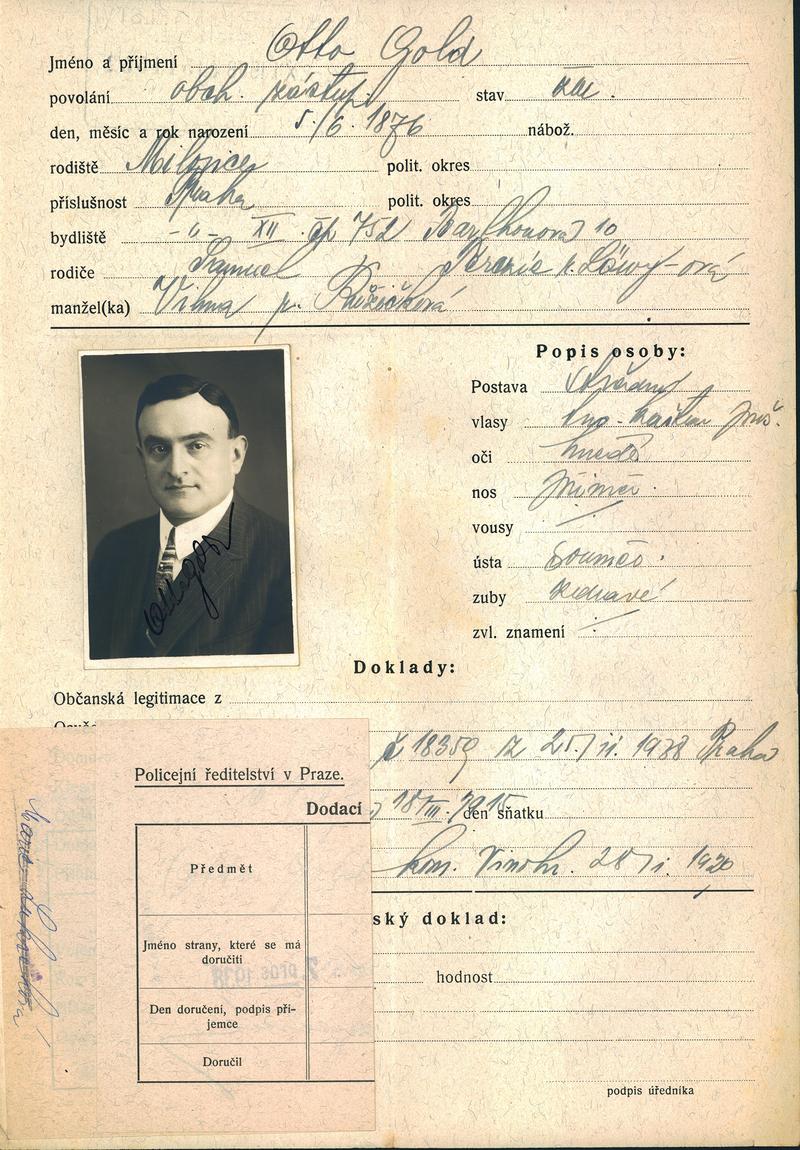 Jméno a příjmení Otto Gold
povolání obch. zástup. stav žen.
den, měsíc a rok narození 5./6. 1876 nábož.
rodiště Milovice polit. okres
příslušnost Praha polit. okres
bydliště -"- XII čp 752 10
rodiče Samuel Löwy-ová
manžel(ka) Vilma r. Růžičková
Popis osoby:
Postava
vlasy
oči hnědé
nos přímý
vousy /
ústa souměr.
zuby zdravé
zvl. znamení /
Doklady:
Občanská legitimace z
č 18359 z 25/11. 1938 Praha
18/VIII. 1915 den sňatku
kom. Vinohr. 28/1. 1920
ský doklad:
hodnost
podpis úředníka
Policejní ředitelství v Praze.
Dodací
Předmět
Jméno strany, které se má
doručiti
Den doručení, podpis pří-
jemce
Doručil